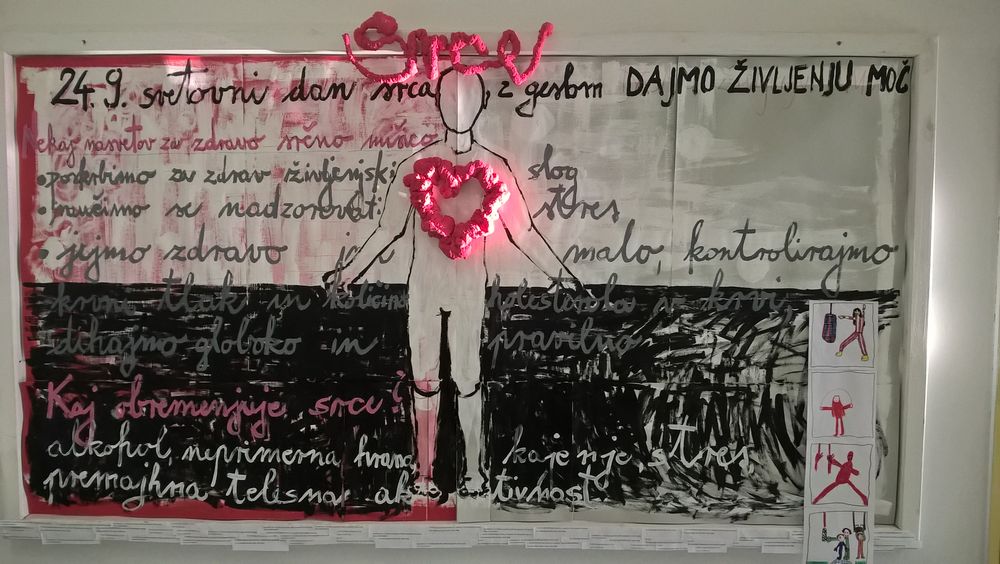 Srce
24. 9. svetovni dan srca z geslom DAJMO ŽIVLJENJU MOČ
Nekaj nasvetov za zdravo srčno mišico
• poskrbimo za zdrav življenjski slog
• naučimo se nadzorovati stres
• jejmo zdravo in malo, kontrolirajmo
krvni tlak in količino holesterola v krvi,
dihajmo globoko in pravilno
Kaj obremenjuje srce?
alkohol, neprimerna hrana, kajenje, stres,
premajhna telesna aktivnost